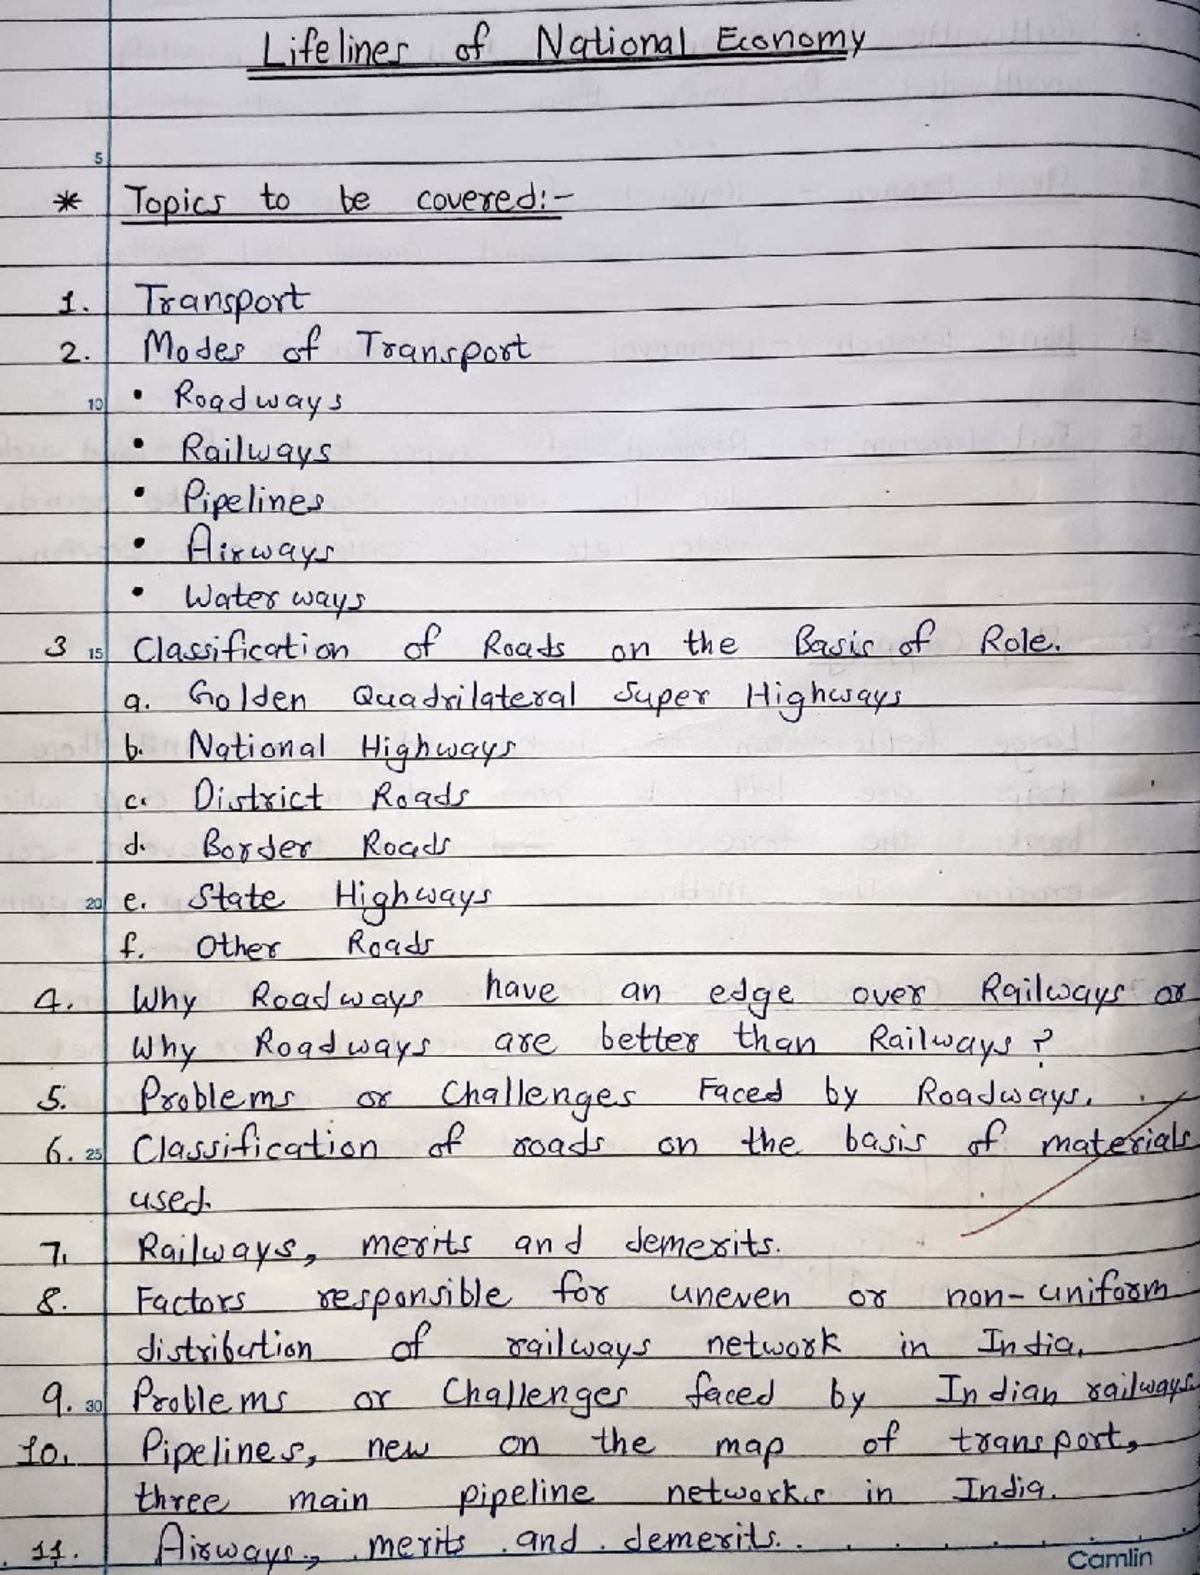 Lifelines of National Economy
5
* Topics to be covered:-
1. Transport
2. Modes of Transport
10 • Roadways
• Railways
• Pipelines
• Airways
• Water ways
3 15 Classification of Roads on the Basis of Role.
a. Golden Quadrilateral Super Highways
b. National Highways
c. District Roads
d. Border Roads
20 e. State Highways
f. Other Roads
4. Why Roadways have an edge over Railways or
Why Roadways are better than Railways?
5. Problems or Challenges Faced by Roadways.
6. 25 Classification of roads on the basis of materials
used.
7. Railways, merits and demerits.
8. Factors responsible for uneven or non-uniform
distribution of railways network in India.
9. 30 Problems or Challenges faced by Indian railways
10. Pipelines, new on the map of transport,
three main pipeline networks in India.
11. Airways, merits and demerits.
Camlin